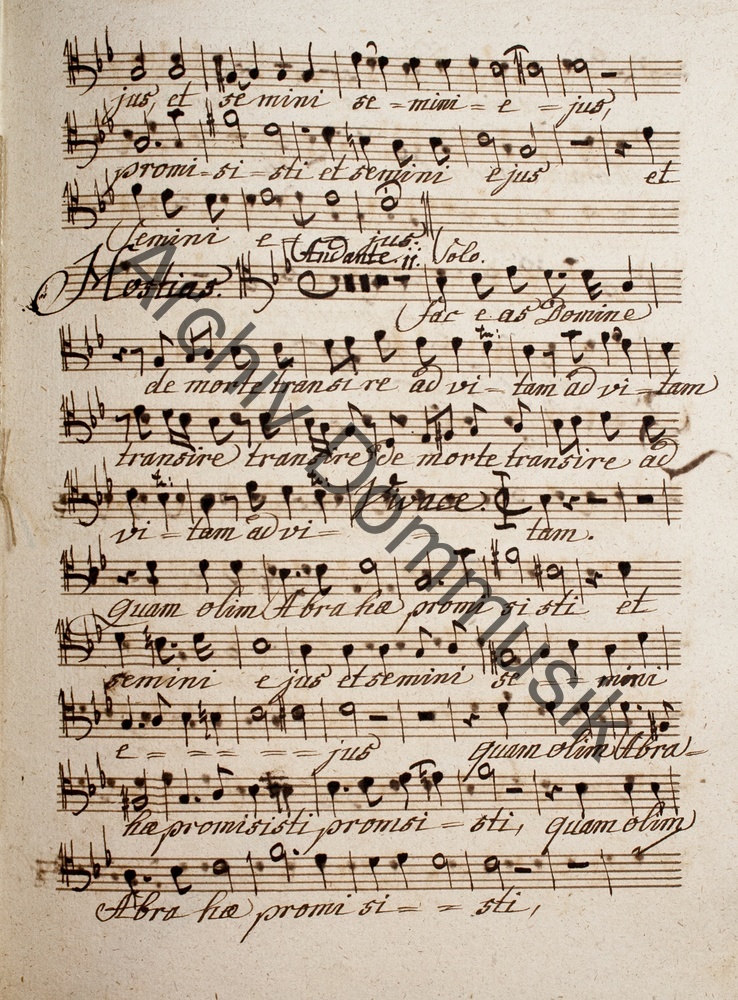 jus, et semini se = mini = e = jus,
promi - si - sti et semini ejus et
Semini e - - jus.
Andante. Solo.
Hostias.
fac e as Domine
de morte transi re ad vi - tam ad vi - tam
transire transire de morte transire ad
Vivace.
vi = tam ad vi = tam.
quam olim Abra hæ promi si sti et
semini e jus et semini se = mini
e = = = = jus quam olim Abra-
hæ promisisti promsi = sti, quam olim
Abra hæ promi si = = sti,
Archiv Dommusik